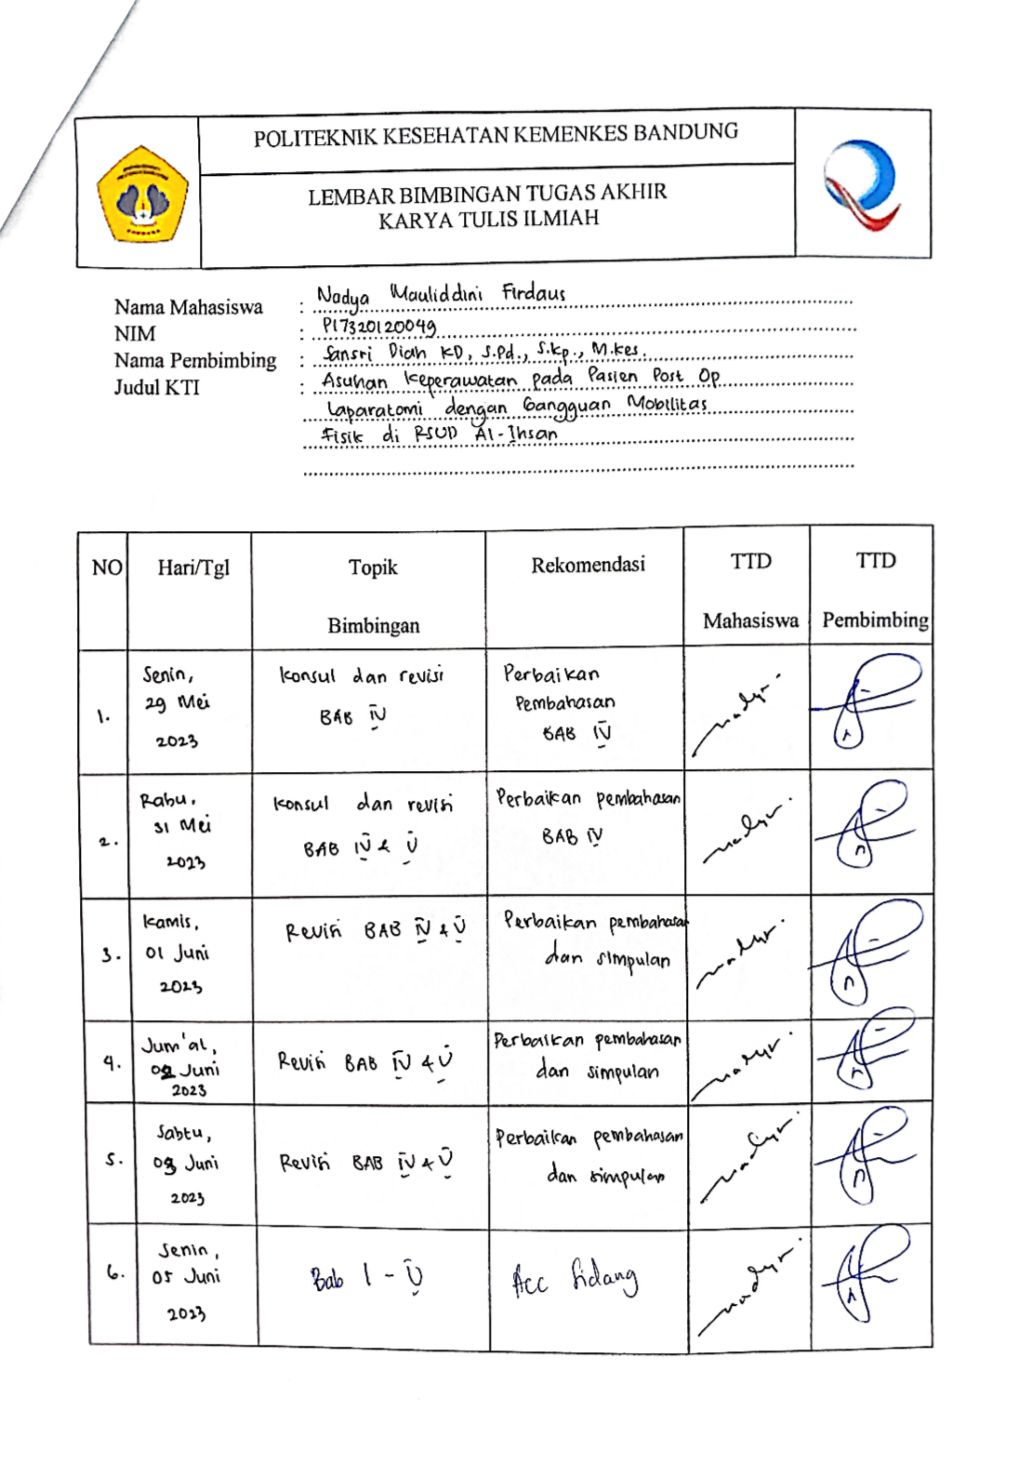 POLITEKNIK KESEHATAN KEMENKES BANDUNG
LEMBAR BIMBINGAN TUGAS AKHIR
KARYA TULIS ILMIAH
Nama Mahasiswa : Nadya Mauliddini Firdaus
NIM : P17320120049
Nama Pembimbing : Sansri Diah KD, S.Pd., S.Kp., M.Kes.
Judul KTI : Asuhan Keperawatan pada Pasien Post Op
Laparatomi dengan Gangguan Mobilitas
Fisik di RSUD Al-Ihsan
NO Hari/Tgl Topik Bimbingan Rekomendasi TTD Mahasiswa TTD Pembimbing
1. Senin, 29 Mei 2023 Konsul dan revisi BAB IV Perbaikan Pembahasan BAB IV
2. Rabu, 31 Mei 2023 Konsul dan revisi BAB IV & V Perbaikan pembahasan BAB IV
3. Kamis, 01 Juni 2023 Revisi BAB IV & V Perbaikan pembahasan dan simpulan
4. Jum'at, 02 Juni 2023 Revisi BAB IV & V Perbaikan pembahasan dan simpulan
5. Sabtu, 03 Juni 2023 Revisi BAB IV & V Perbaikan pembahasan dan simpulan
6. Senin, 05 Juni 2023 Bab I - V Acc Sidang